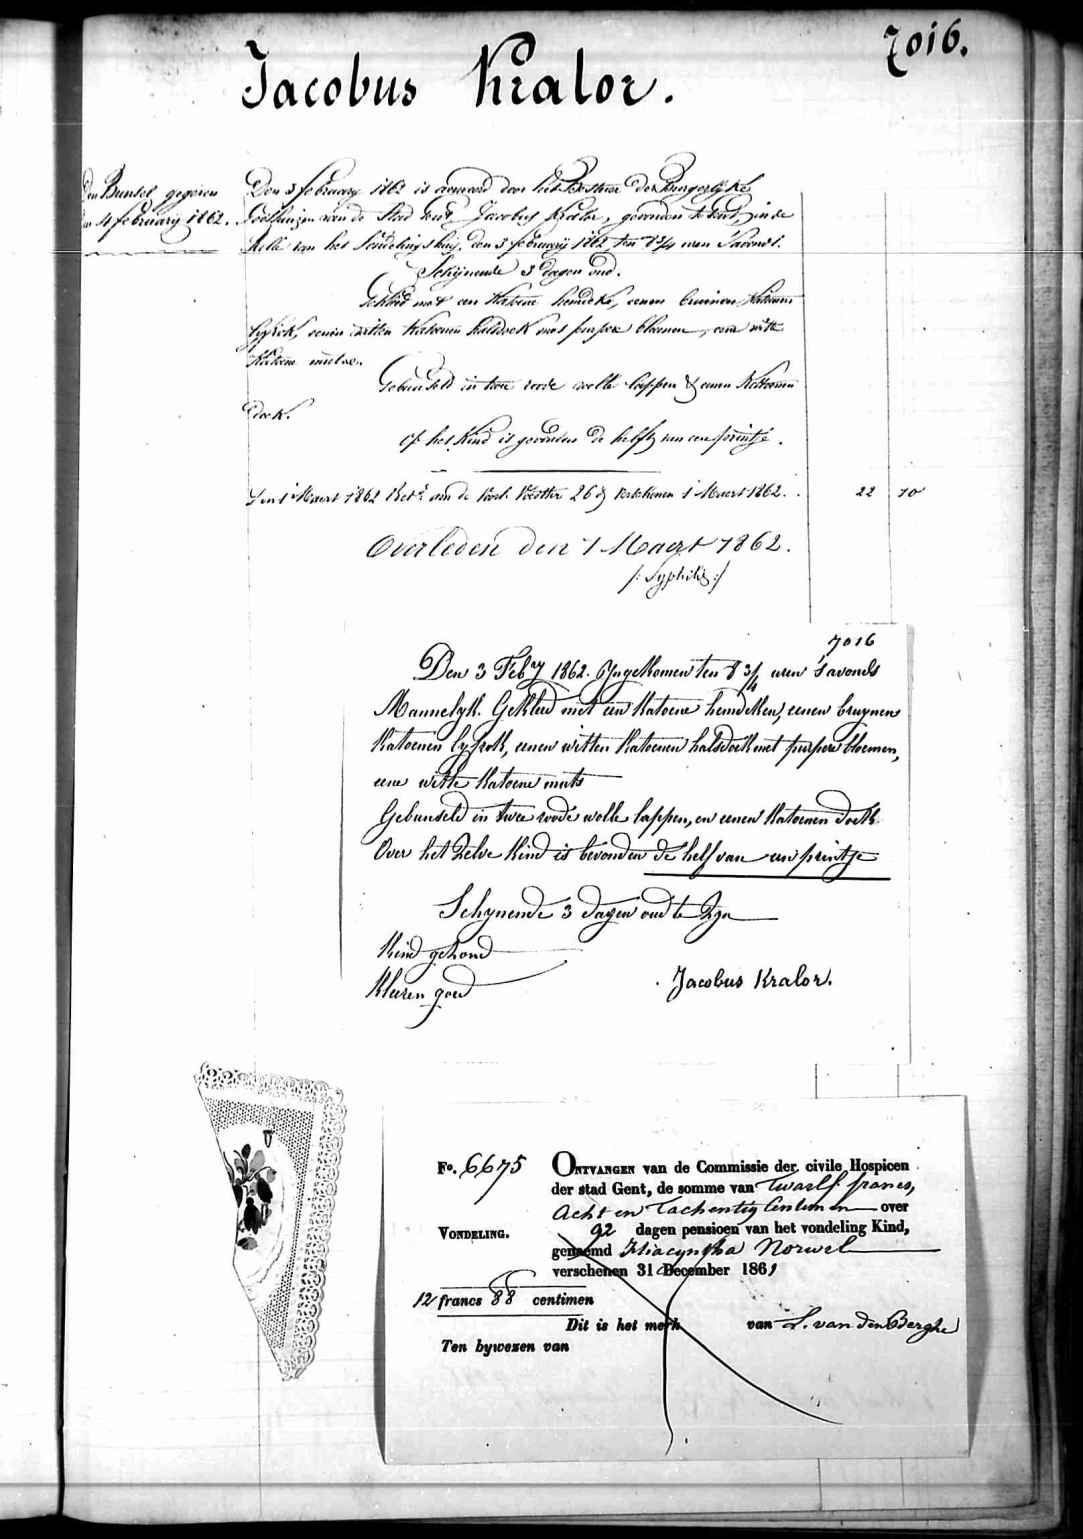 7016.
Jacobus Kralor.
Den Bunsel gegeven
den 4 february 1862.
Den 3 february 1862 is aenveerd door het Bestuer der Burgerlyke
Godshuizen van de Stad Gent, Jacobus Kralor, gevonden te Gent, in de
rolle van het Vondelingshuis, den 3 february 1862 ten 8 3/4 uren 's avonds.
Schynende 3 dagen oud.
Gekleed met een Katoene hemdeke, eenen bruinen Katoenen
lyfrok, eenen witten Katoenen halsdoek met purpere bloemen, eene witte
Katoene mutse.
Gebunseld in twee roode wolle lappen & eenen Kattoenen
doek.
Op het Kind is gevonden de helft van een printje.
Den 1 Maert 1862 Bet. aan de 26 d. verschenen 1 Maert 1862. 22 10
Overleden den 1 Maert 1862.
/: Syphilis :/
7016
Den 3 Feb.ry 1862. Yngekomen ten 8 3/4 uren 's avonds
Mannelyk. Gekleed met een Katoene hemdeken, eenen bruynen
Katoenen lyfrok, eenen witten Katoenen halsdoek met purpere bloemen,
eene witte Katoene muts
Gebunseld in twee roode wolle lappen, en eenen Katoenen doek
Over het Zelve Kind is bevonden de helf van een printje
Schynende 3 dagen oud te Zyn
Kind gezond
Kleeren goed
Jacobus Kralor.
Fo. 6675 Ontvangen van de Commissie der civile Hospicen
der stad Gent, de somme van Twaelf francs,
Acht en Tachentig Centimen over
Vondeling. 92 dagen pensioen van het vondeling Kind,
genaemd Hiacyntha Norwel
verschenen 31 December 1861
12 francs 88 centimen
Dit is het merk van L. van den Berghe
Ten bywezen van